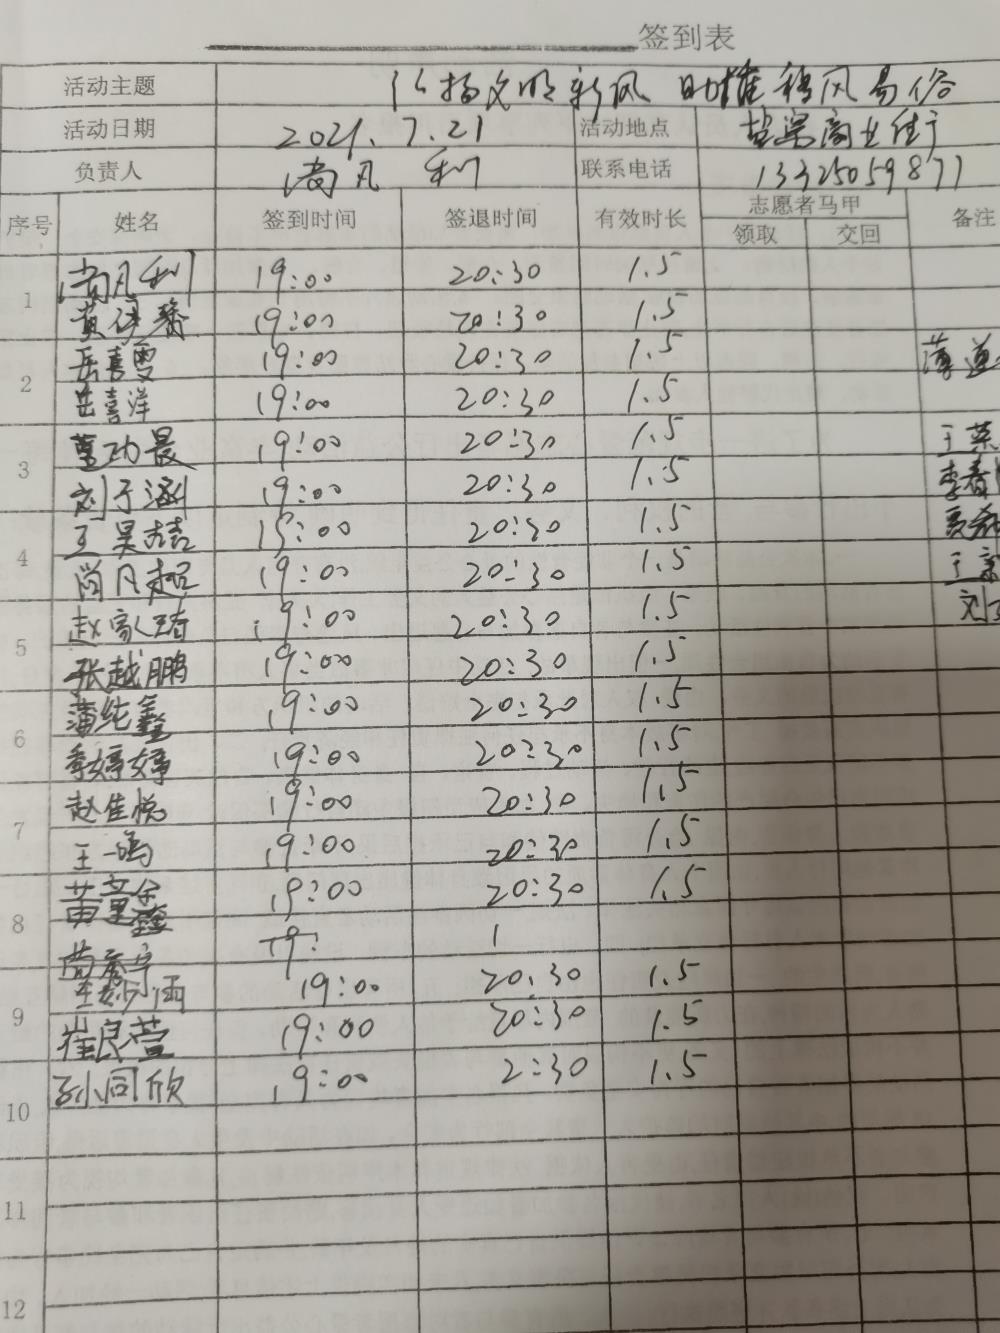 签到表
活动主题 弘扬文明新风 助推移风易俗
活动日期 2021.7.21 活动地点 盐梁商业街
负责人 尚凡利 联系电话 13325059871
序号 姓名 签到时间 签退时间 有效时长 志愿者马甲 备注
领取 交回
1 尚凡利 19:00 20:30 1.5
黄 19:00 20:30 1.5
2 岳喜雯 19:00 20:30 1.5
岳喜洋 19:00 20:30 1.5
3 曹功晨 19:00 20:30 1.5 王荣
刘子涵 19:00 20:30 1.5 李春
4 王昊喆 19:00 20:30 1.5
尚凡超 19:00 20:30 1.5 王
5 赵家琦 19:00 20:30 1.5 刘
张越鹏 19:00 20:30 1.5
6 蒲纯鑫 19:00 20:30 1.5
季婷婷 19:00 20:30 1.5
7 赵佳悦 19:00 20:30 1.5
王一鸣 19:00 20:30 1.5
8 苗童鑫 19:00 20:30 1.5
19:
9 王妙涵 19:00 20:30 1.5
崔良萱 19:00 20:30 1.5
10 孙同欣 19:00 2:30 1.5
11
12